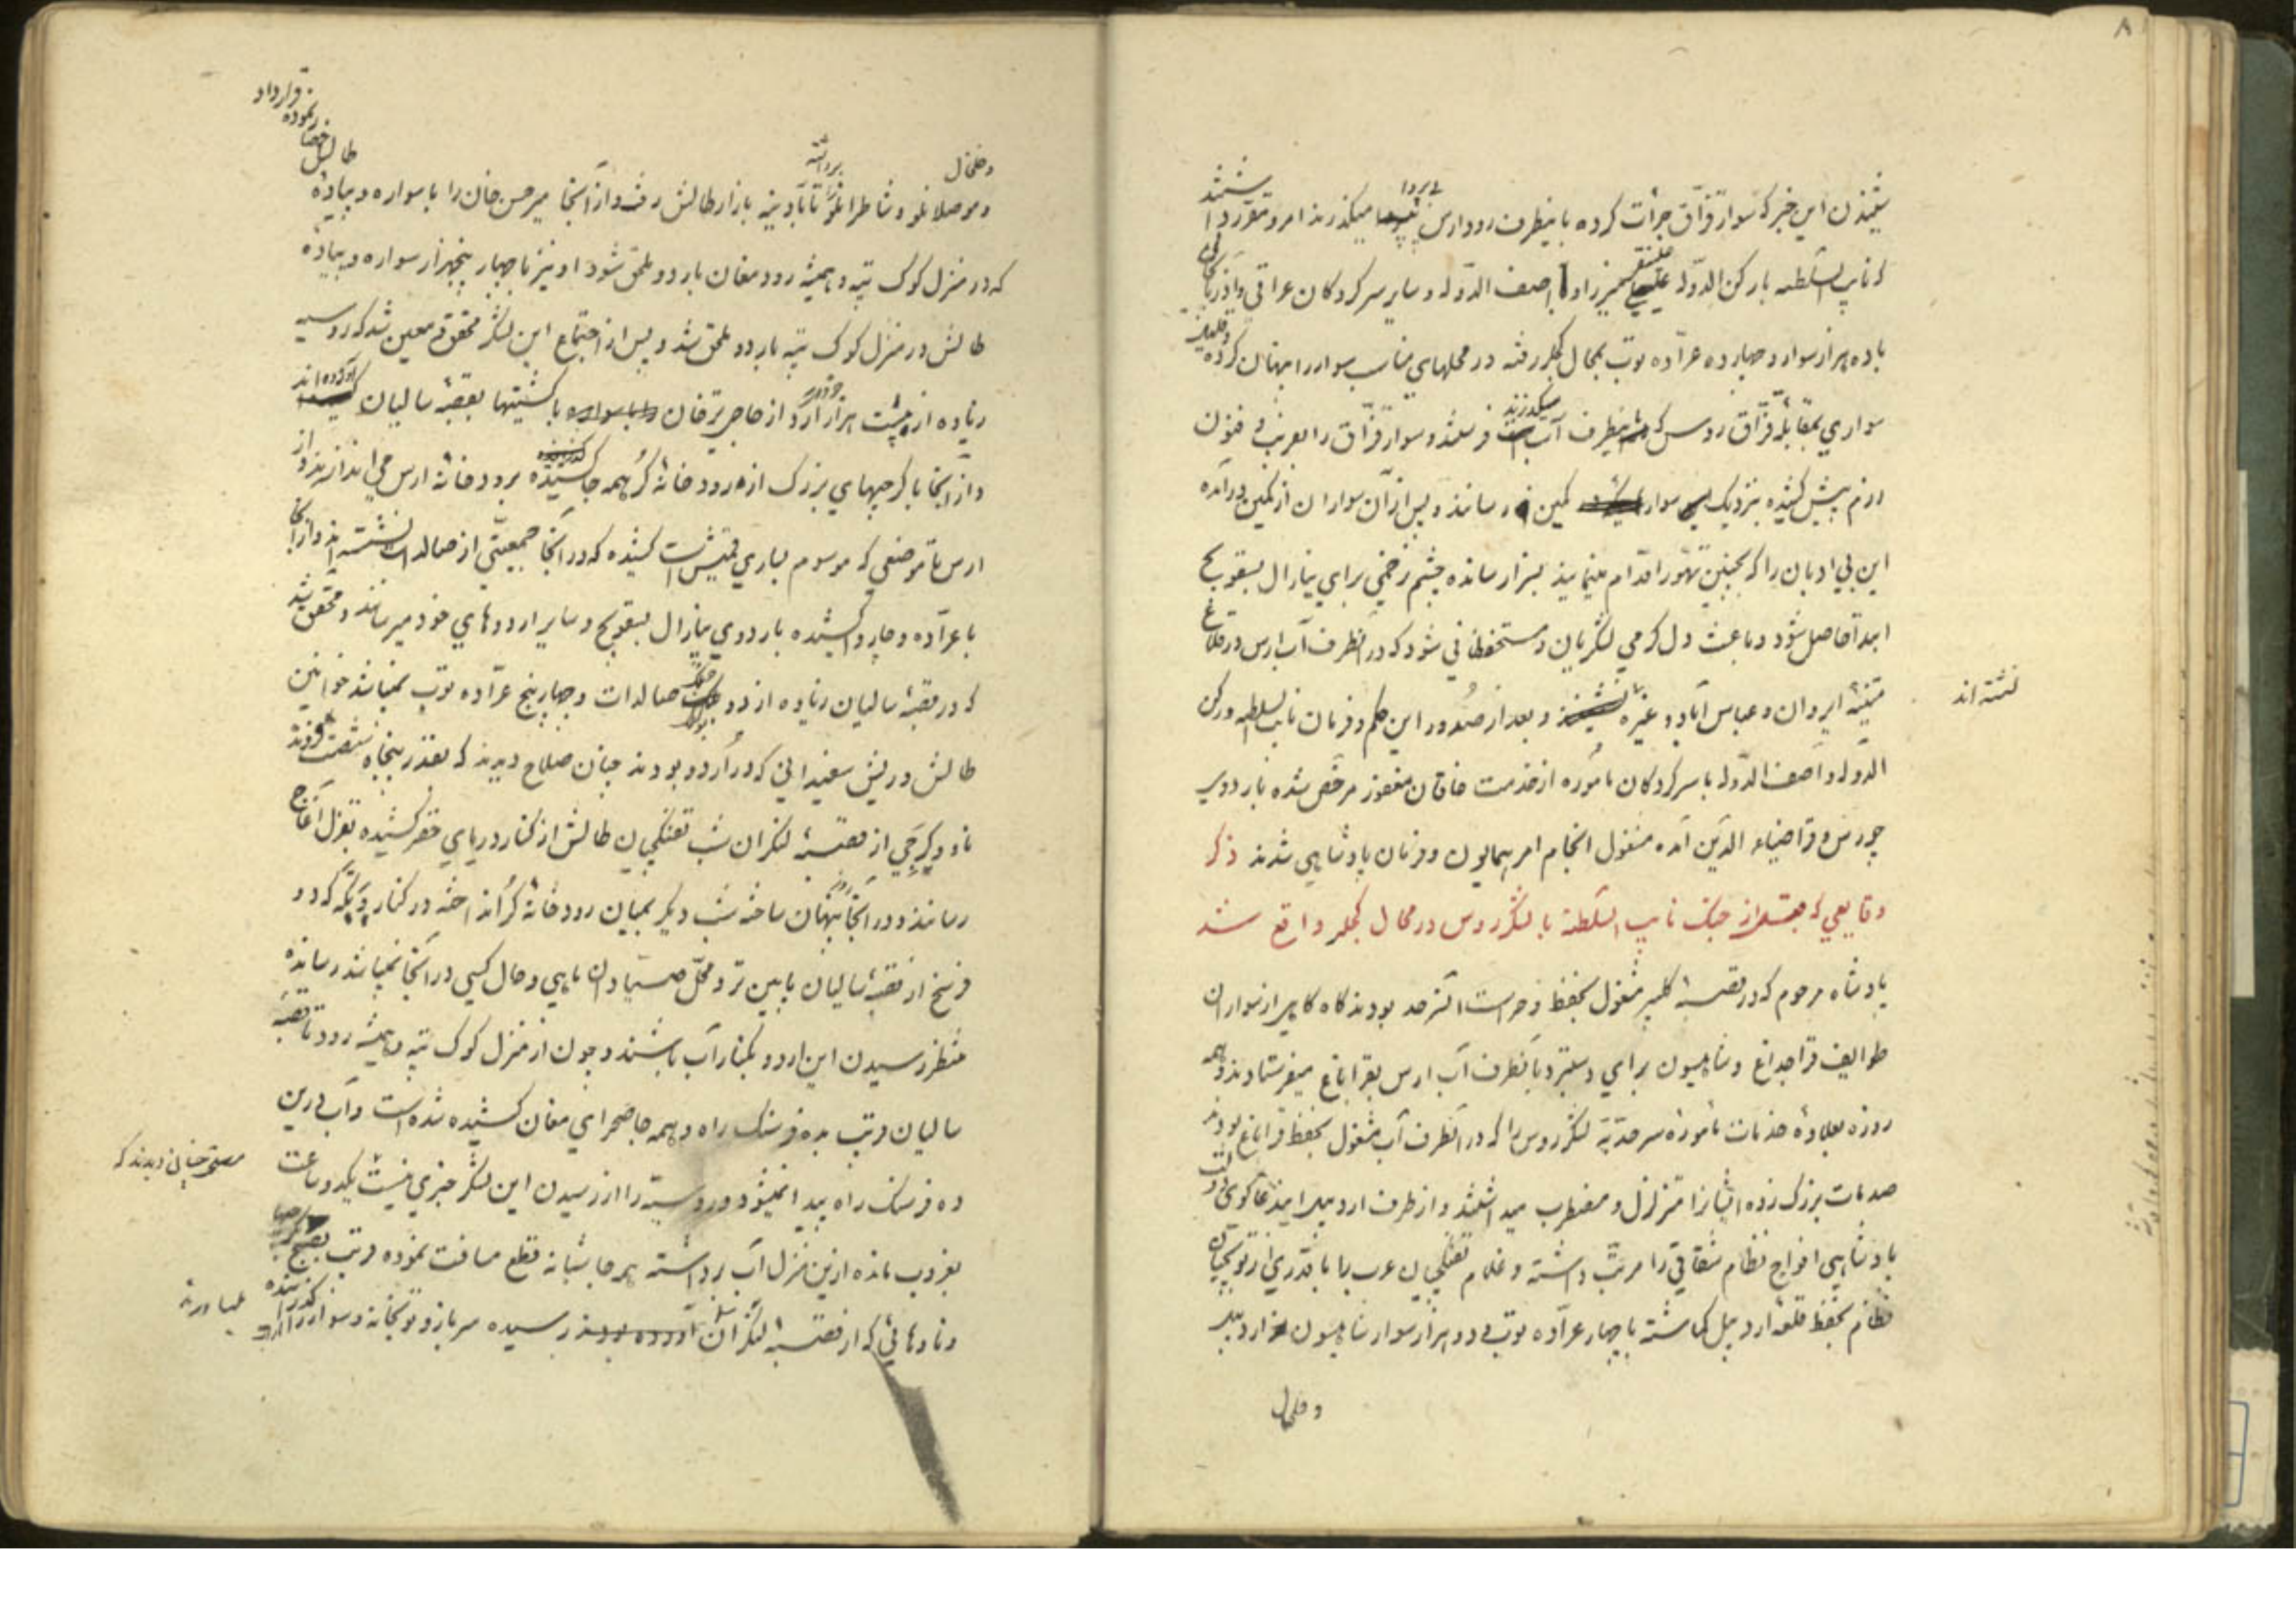 ۸
شنیدن این خبر که سوار قزاق جرأت کرده باینطرف رود ارس بی پروا میکذرند امر و مقرر داشتند
که نایب السلطنه با رکن الدوله علینقی میرزا و آصف الدوله و سایر سرکردکان عراقی و آذربایجانی
با ده هزار سوار و چهار ده عراده توپ بمحال کجلر رفته در محلهای مناسب سوار را پنهان کرده و قلیلی
سواری بمقابله قزاق روس که باینطرف آب میکذرند فرستند و سوار قزاق را بفریب و فنون
رزم پیش کشیده بنزدیک سوار کمین رسانند و پس از آن سواران از کمین درآمده
این بی ادبان را که بچنین تهور اقدام مینمایند بسزا رسانده چشم زخمی برای ینارال بسقویچ
ابدآ حاصل شود و باعث دل کرمی لشکریان و مستحفظانی شود که در آنطرف آب ارس در قلاع
متینه ایروان و عباس آباد و غیره نشسته اند و بعد از صدور این حکم و فرمان نایب السلطنه و رکن
الدوله و آصف الدوله با سرکردکان مأموره از خدمت خاقان مغفور مرخص شده باردوی
چورس و قرا ضیاء الدین آمده مشغول انجام امر همایون و فرمان پادشاهی شدند ذکر
وقایعی که قبل از جنک نایب السلطنه با لشکر روس در محال کجلر واقع شد
پادشاه مرحوم که در قصبه کلیبر مشغول بحفظ و حراست آن سرحد بودند کاه کاهی از سواران
طوایف قراجه داغ و شاهسون برای دستبرد بآنطرف آب ارس بقراباغ میفرستادند و همه
روزه بعلاوه خدمات مأموره سرحدیه لشکر روس را که در آنطرف آب مشغول بحفظ قراباغ بودند
صدمات بزرک زده ایشانرا متزلزل و مضطرب میداشتند و از طرف اردبیل این دعاکوی دولت
پادشاهی افواج نظام شقاقی را مرتب داشته و غلام تفنکچیان عرب را با قدری از توپچیان
نظام بحفظ قلعه اردبیل کماشته با چهار عراده توپ و دو هزار سوار شاهسون از اردبیل
و خلخال
و خلخال
و موصلانلو و شاطرانلو را برداشته تا آدینه بازار طالش رفت و از آنجا میر حسن خان را با سواره و پیاده طالش احضار نموده قرارداد
که در منزل کوک تپه و همیشه رود مغان باردو ملحق شود او نیز با چهار پنجهزار سواره و پیاده
طالش در منزل کوک تپه باردو ملحق شد و پس از اجتماع این لشکر محقق و معین شد که روسیه
زیاده از بیست هزار خروار آرد از حاجی ترخان با کشتیها بقصبه سالیان آورده اند
و از آنجا با کرجیهای بزرک از رودخانه کر همه جا کشیده برودخانه ارس می اندازند و از
ارس تا موضعی که موسوم بیاری قمیش است کشیده که در آنجا جمعیتی از صالدات نشسته اند و از آنجا
با عراده و چاروا کشیده باردوی ینارال بسقویچ و سایر اردوهای خود میرسانند و محقق شد
که در قصبه سالیان زیاده از دو صالدات و چهار پنج عراده توپ نمیباشد خوانین
طالش و ریش سفیدانی که در اردو بودند چنان صلاح دیدند که بقدر پنجاه شصت فروند
ناو و کرجی از قصبه لنکران شب تفنکچیان طالش از کنار دریای خزر کشیده بقزل آغاج
رسانند و در آنجا پنهان ساخته شب دیکر بمیان رودخانه کر انداخته در کنار ویکه که دو
فرسخ از قصبه سالیان پایین تر و محل صیادان ماهی و حال کسی در آنجا نمیباشد رسانده
منتظر رسیدن این اردو بکنار آب باشند و چون از منزل کوک تپه و همیشه رود تا قصبه
سالیان قریب بده فرسنک راه و همه جا صحرای مغان کشیده شده است و آب درین
ده فرسنک راه پیدا نمیشود و روسیه را از رسیدن این لشکر خبری نیست یکدو ساعت
مستحسن چنان دیدند که
بغروب مانده ازین منزل آب برداشته همه جا شبانه قطع مسافت نموده قریب بصبح
و ناوهائی که از قصبه لنکران رسیده سرباز و توپخانه و سوار را کذرانده
نشسته اند